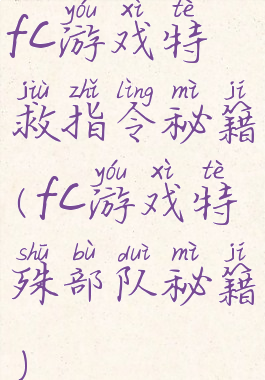 yóu xì tè
fc游戏特
jiù zhǐ lìng mì jí
救指令秘籍
yóu xì tè
(fc游戏特
shū bù duì mì jí
殊部队秘籍
)